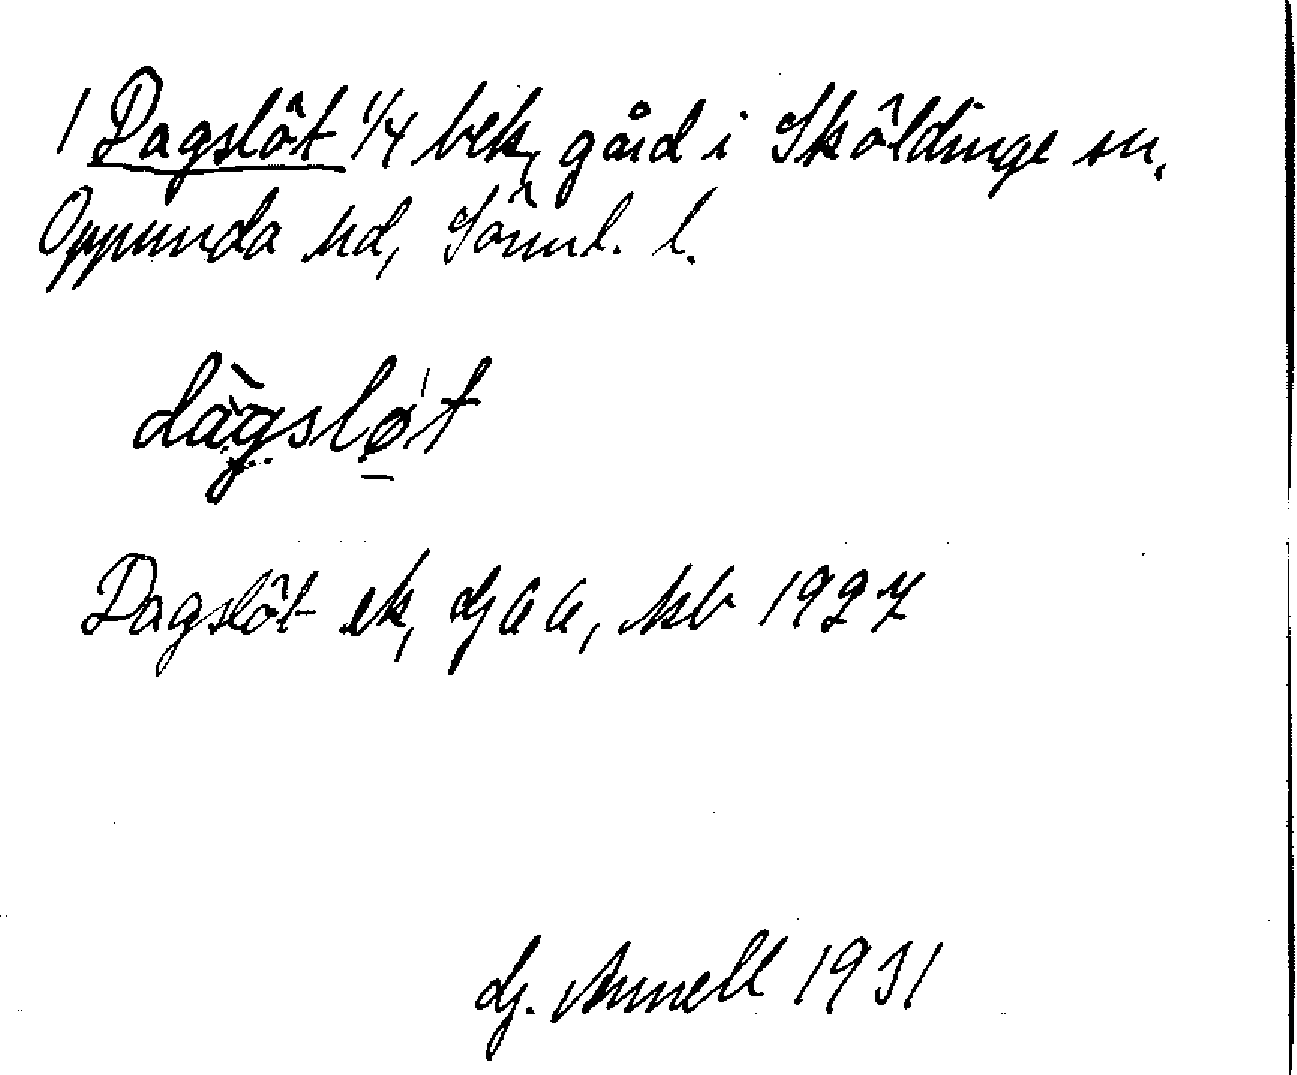 1 Dagslöt 1/4 bek, gård i Sköldinge sn.
Oppunda hd, Sörml. l.
dàgsløt
Dagslöt ek, GAA, kb 1927
G. Annell 1931